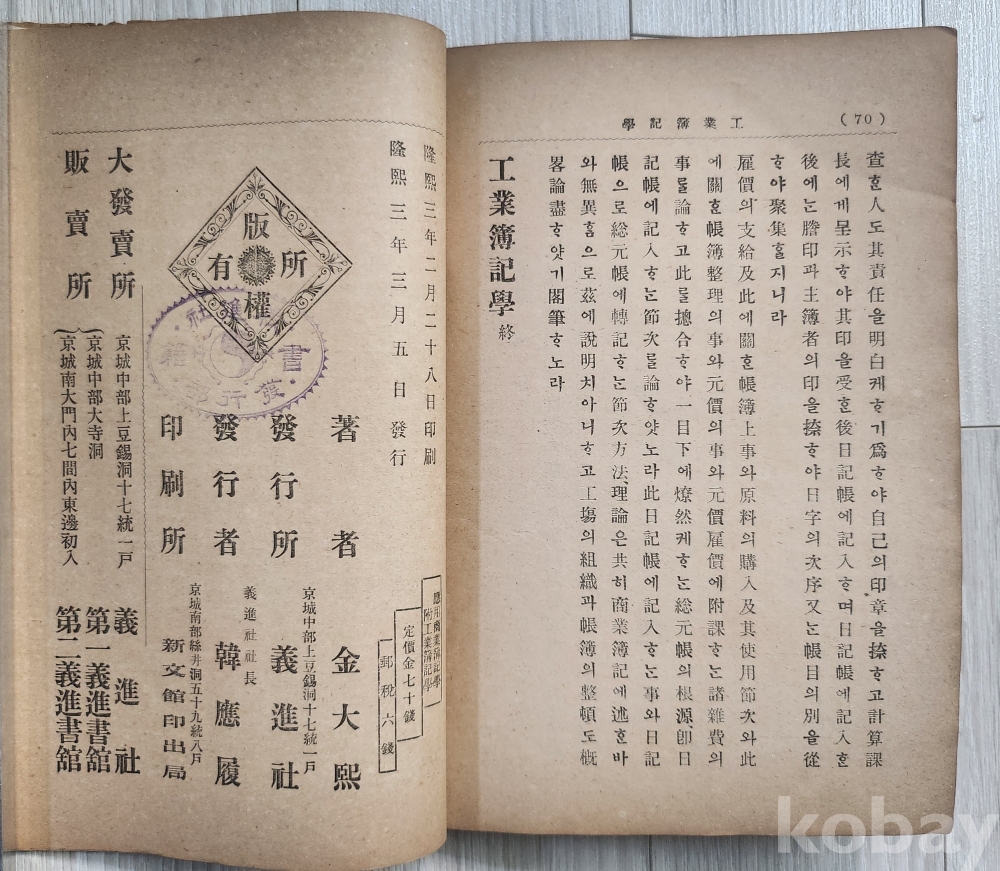 (70)
工業簿記學
查ᄒᆞᆫ人도其責任을明白케ᄒᆞ기爲ᄒᆞ야自己의印章을捺ᄒᆞ고計算課
長에게呈示ᄒᆞ야其印을受ᄒᆞᆫ後日記帳에記入ᄒᆞ며日記帳에記入ᄒᆞᆫ
後에ᄂᆞᆫ謄印과主簿者의印을捺ᄒᆞ야日字의次序又ᄂᆞᆫ帳目의別을從
ᄒᆞ야聚集ᄒᆞᆯ지니라
雇價의支給及此에關ᄒᆞᆫ帳簿上事와原料의購入及其使用節次와此
에關ᄒᆞᆫ帳簿整理의事와元價의事와元價雇價에附課ᄒᆞᄂᆞᆫ諸雜費의
事를論ᄒᆞ고此를摠合ᄒᆞ야一目下에燎然케ᄒᆞᄂᆞᆫ総元帳의根源、卽日
記帳에記入ᄒᆞᄂᆞᆫ節次를論ᄒᆞ얏노라此日記帳에記入ᄒᆞᄂᆞᆫ事와日記
帳으로総元帳에轉記ᄒᆞᄂᆞᆫ節次方法、理論은共히商業簿記에述ᄒᆞᆫ바
와無異ᄒᆞᆷ으로玆에說明치아니ᄒᆞ고工塲의組織과帳簿의整頓도槪
畧論盡ᄒᆞ얏기閣筆ᄒᆞ노라
工業簿記學 終
隆熙三年二月二十八日印刷
隆熙三年三月五日發行
版權所有
應用商業簿記學
附工業簿記學
定價金七十錢
郵稅六錢
著者 金大熙
發行所 京城中部上豆錫洞十七統一戶 義進社
發行者 義進社長 韓應履
印刷所 京城南部絲井洞五十九統八戶 新文館印出局
大發賣所 京城中部上豆錫洞十七統一戶 義進社
販賣所 京城中部大寺洞 第一義進書館
京城南大門內七間內東邊初入 第二義進書館
kobay